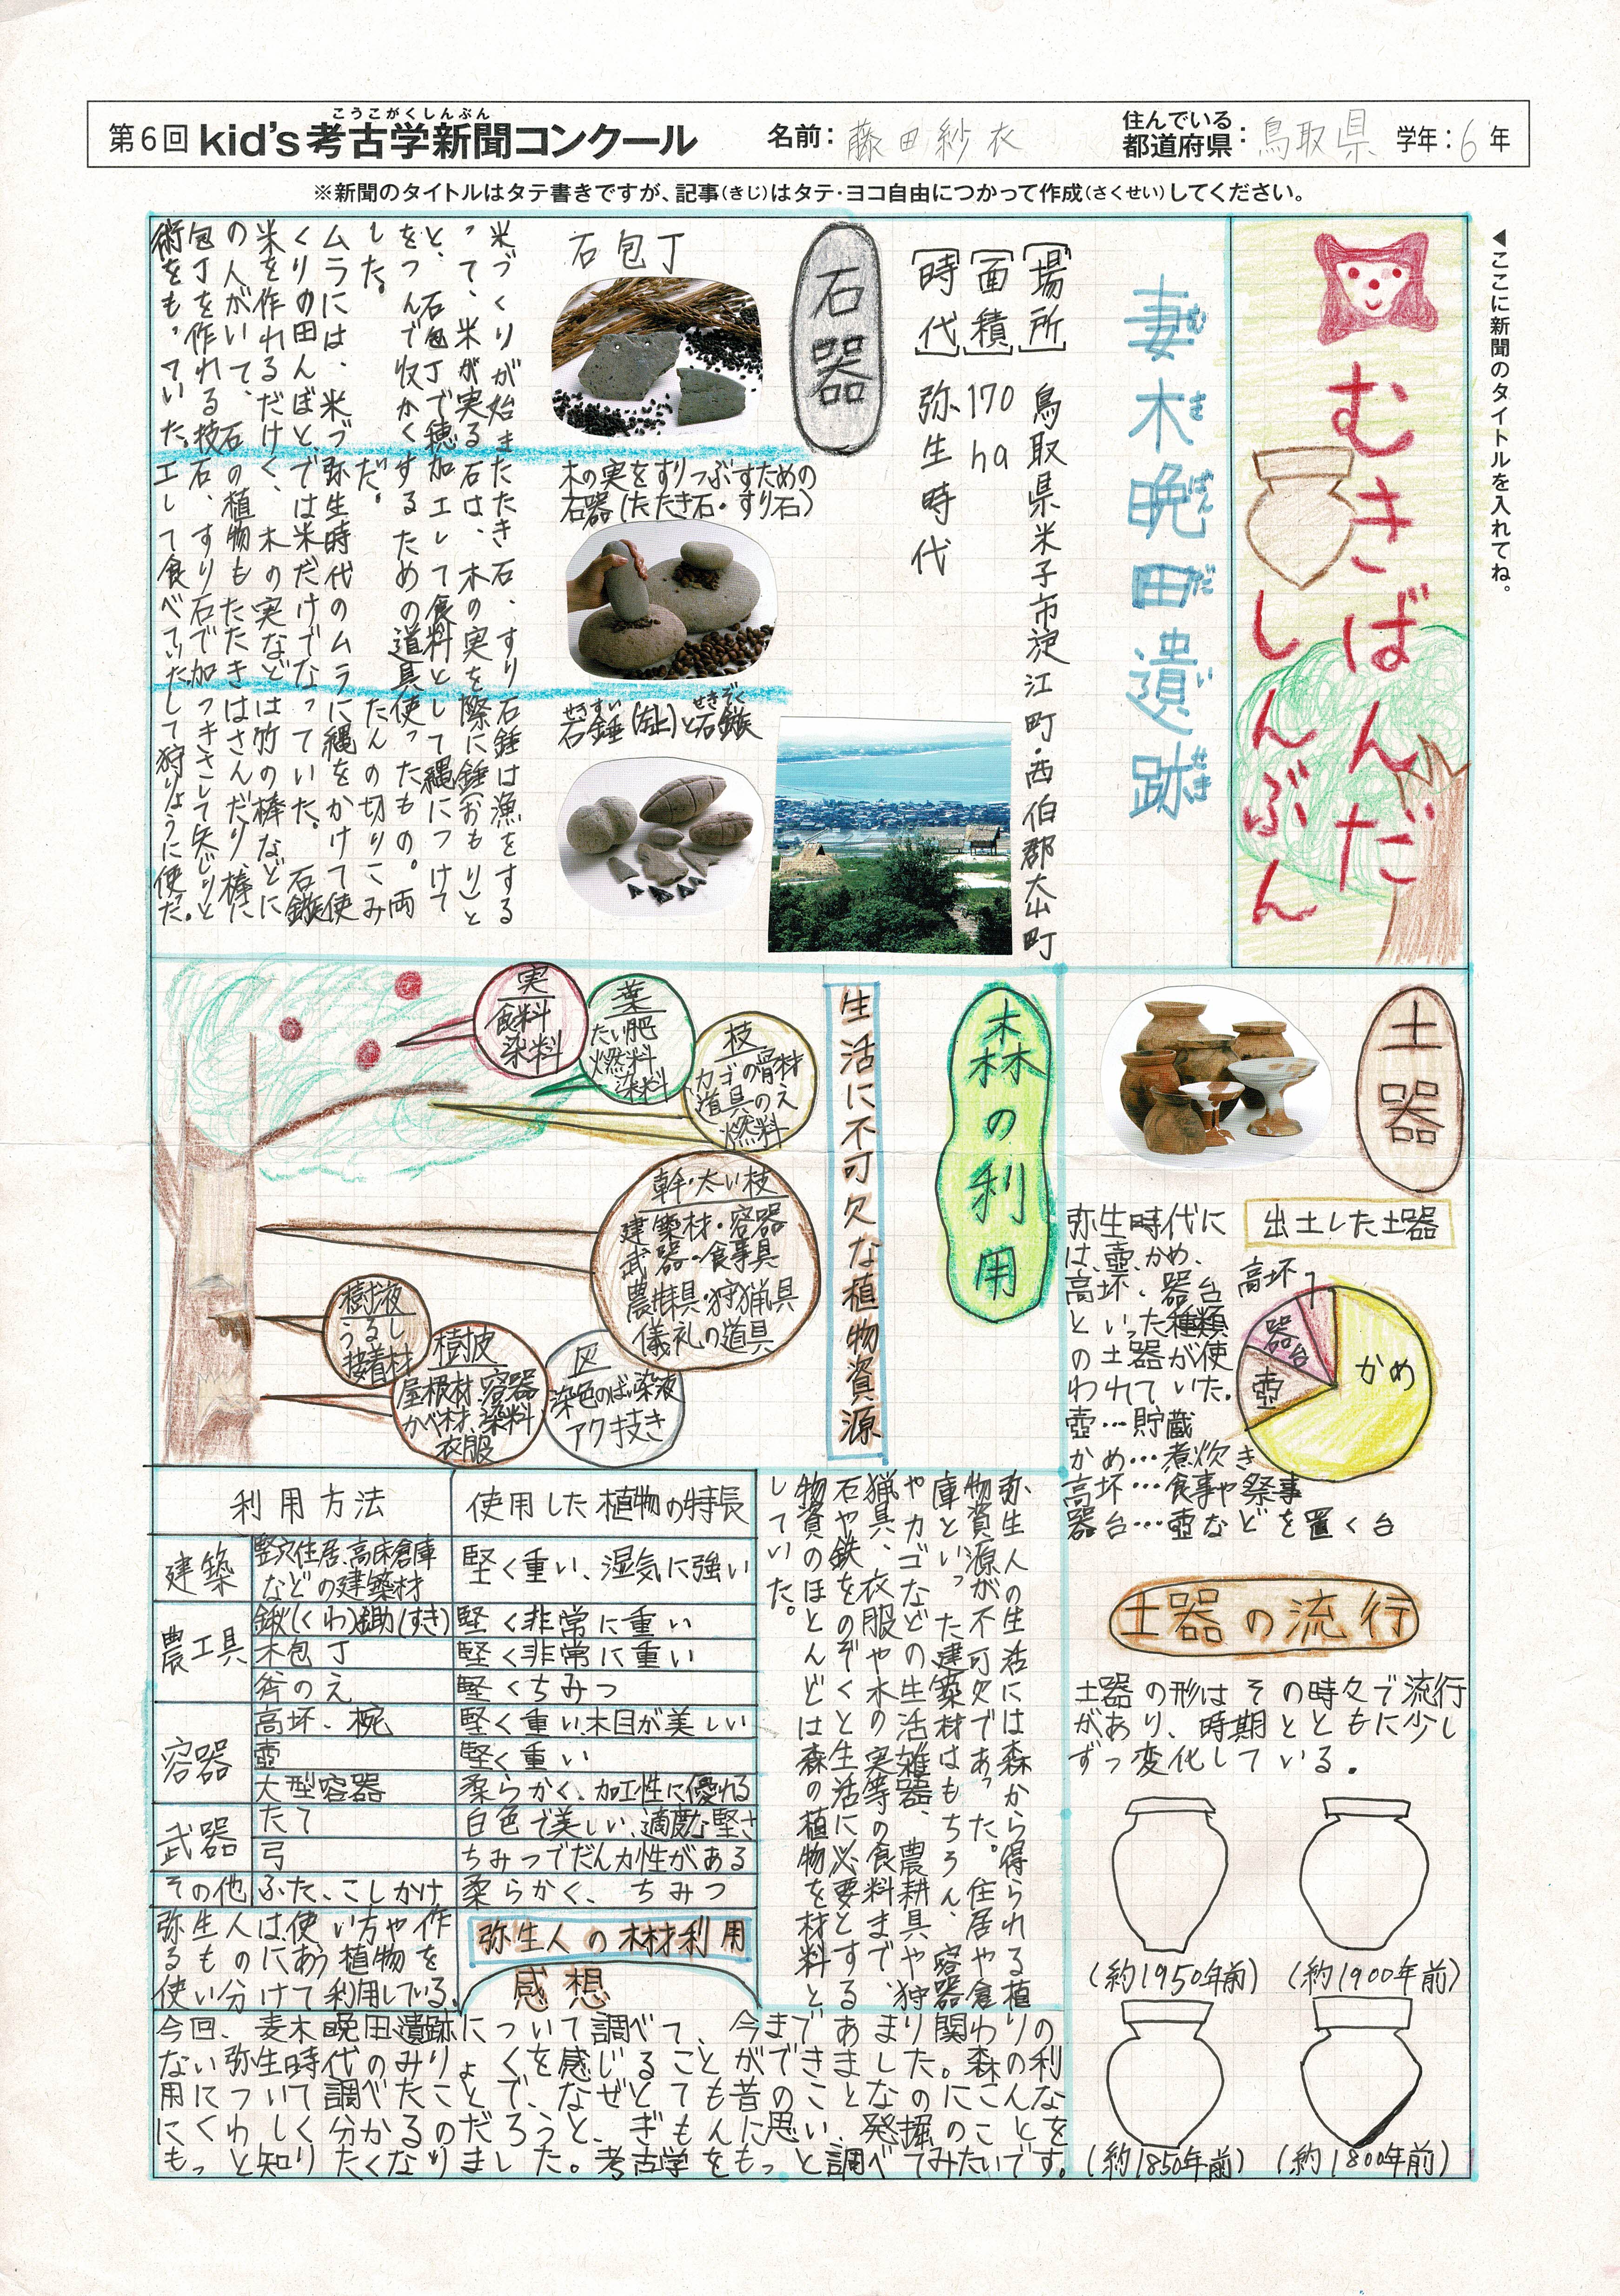 こうこがくしんぶん
第6回 kid's考古学新聞コンクール 名前：藤田紗衣 住んでいる都道府県：鳥取県 学年：6年
※新聞のタイトルはタテ書きですが、記事（きじ）はタテ・ヨコ自由につかって作成（さくせい）してください。
◀ここに新聞のタイトルを入れてね。
むきばんだ
しんぶん
妻木晩田遺跡
むきばんだいせき
［場所］ 鳥取県米子市淀江町・西伯郡大山町
［面積］ 170ha
［時代］ 弥生時代
石器
石包丁
米づくりが始ま
って、米が実る
と、石包丁で穂
をつんで収かく
した。
ムラには、米づ
くりの田んぼと、
米を作れるだけ
の人がいて、石
包丁を作れる技
術をもっていた。
木の実をすりつぶすための
石器（たたき石・すり石）
たたき石、すり
石は、木の実を
加工して食料と
するための道具
だ。
弥生時代のムラ
では米だけでな
く、木の実など
の植物もたたき
石、すり石で加
工して食べていた。
せきすい せきぞく
石錘（左上）と石鏃
石錘は漁をする
際に錘（おもり）と
して縄につけて
使ったもの。両
たんの切りこみ
に縄をかけて使
っていた。石鏃
は竹の棒などに
はさんだり、棒に
つきさして矢じりと
して狩りょうに使った。
土器
出土した土器
弥生時代に
は、壺、かめ、
高坏、器台
といった種類
の土器が使
われていた。
壺…貯蔵
かめ…煮炊き
高坏…食事や祭事
器台…壺などを置く台
高坏
器台
壺
かめ
土器の流行
土器の形はその時々で流行
があり、時期とともに少し
ずつ変化している。
（約1950年前）
（約1900年前）
（約1850年前）
（約1800年前）
森の利用
生活に不可欠な植物資源
実
食料
染料
葉
たい肥
燃料
染料
枝
カゴの骨材
道具のえ
燃料
幹・太い枝
建築材・容器
武器・食事具
農耕具・狩猟具
儀礼の道具
樹液
うるし
接着材
樹皮
屋根材、容器
かべ材、染料
衣服
灰
染色のばい染液
アク抜き
弥生人の生活には森から得られる植
物資源が不可欠であった。住居や倉
庫といった建築材はもちろん、容器
やカゴなどの生活雑器、農耕具や狩
猟具、衣服や木の実等の食料まで、
石や鉄をのぞくと生活に必要とする
物資のほとんどは森の植物を材料と
していた。
利用方法 使用した植物の特長
建築 竪穴住居、高床倉庫などの建築材 堅く重い、湿気に強い
農工具 鍬（くわ）鋤（すき） 堅く非常に重い
木包丁 堅く非常に重い
斧のえ 堅くちみつ
容器 高坏、椀 堅く重い、木目が美しい
壺 堅く重い
大型容器 柔らかく、加工性に優れる
武器 たて 白色で美しい、適度な堅さ
弓 ちみつでだん力性がある
その他 ふた、こしかけ 柔らかく、ちみつ
弥生人は、使い方や作
るものにあう植物を
使い分けて利用している。
弥生人の木材利用
感想
今回、妻木晩田遺跡について調べて、今まであまり関わりの
ない弥生時代のみりょくを感じることができました。森の利
用について調べたことで、なぜとても昔のことなのにこんな
にくわしく分かるのだろうと、ぎもんに思い、発掘のことを
もっと知りたくなりました。考古学をもっと調べてみたいです。